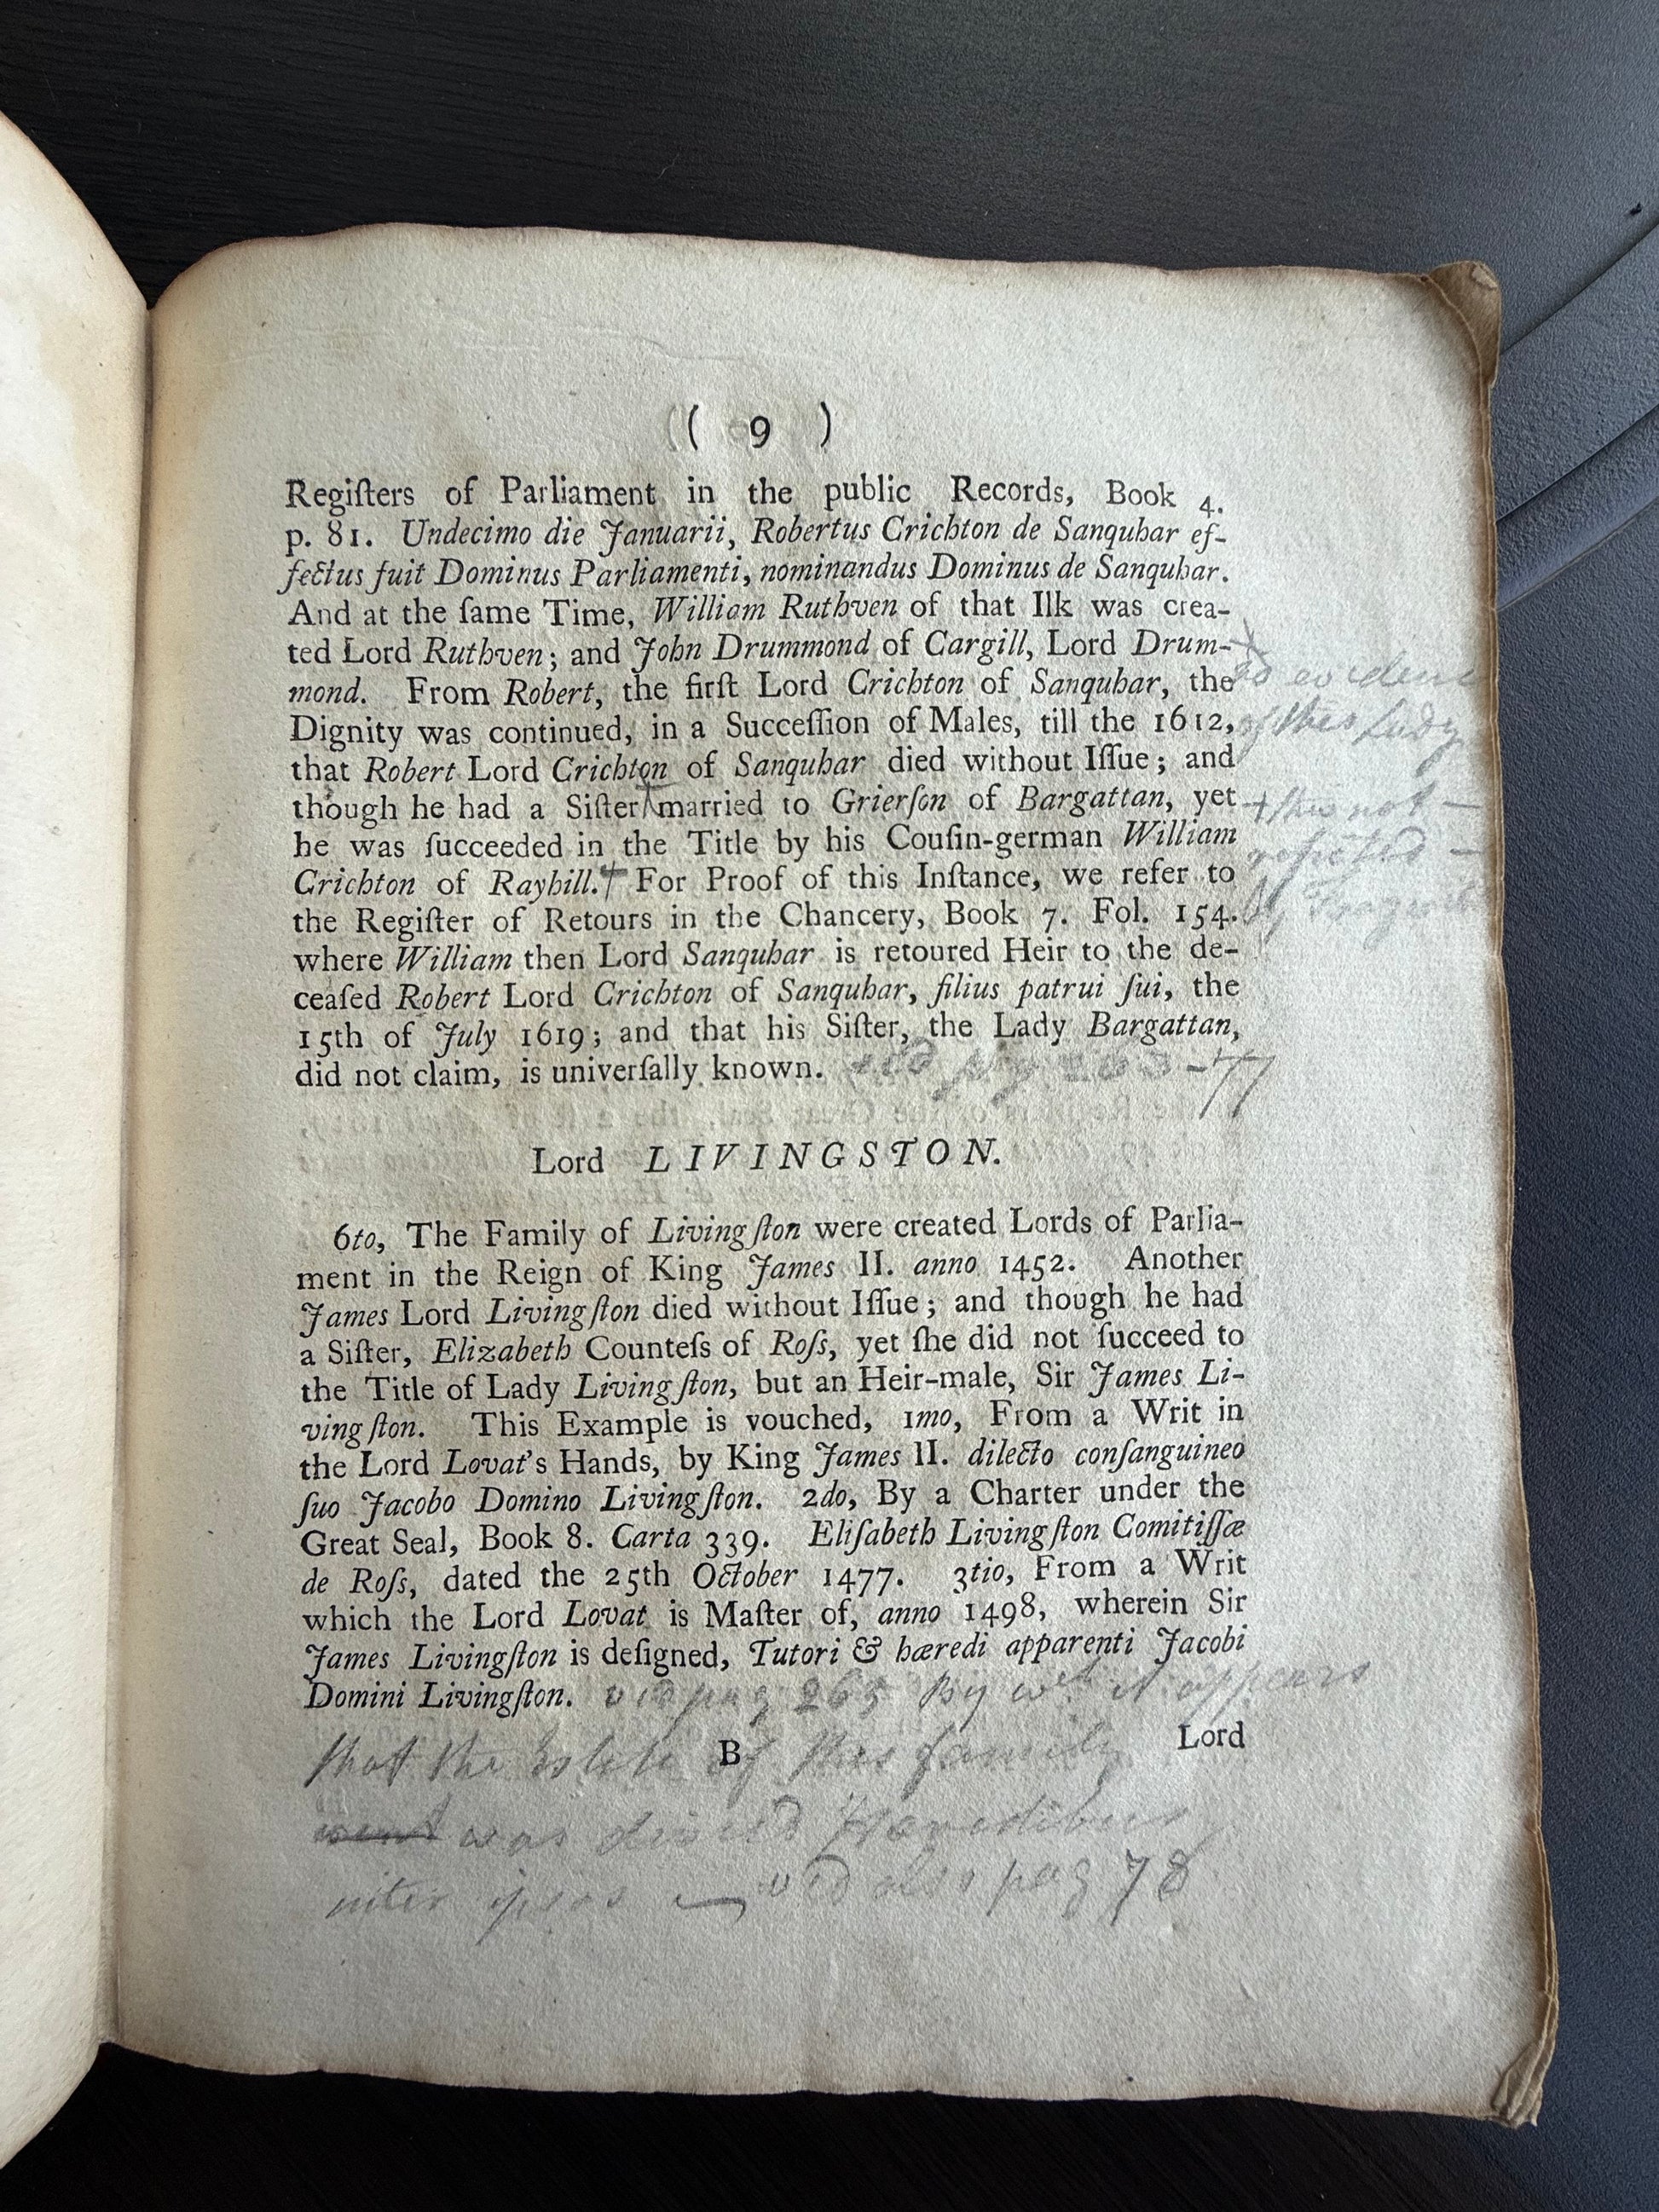 ( 9 )
Regiſters of Parliament in the public Records, Book 4.
p. 81. Undecimo die Januarii, Robertus Crichton de Sanquhar ef-
fectus fuit Dominus Parliamenti, nominandus Dominus de Sanquhar.
And at the ſame Time, William Ruthven of that Ilk was crea-
ted Lord Ruthven; and John Drummond of Cargill, Lord Drum-
mond. From Robert, the firſt Lord Crichton of Sanquhar, the
Dignity was continued, in a Succeſſion of Males, till the 1612,
that Robert Lord Crichton of Sanquhar died without Iſſue; and
though he had a Siſter married to Grierſon of Bargattan, yet
he was ſucceeded in the Title by his Couſin-german William
Crichton of Rayhill. For Proof of this Inſtance, we refer to
the Regiſter of Retours in the Chancery, Book 7. Fol. 154.
where William then Lord Sanquhar is retoured Heir to the de-
ceaſed Robert Lord Crichton of Sanquhar, filius patrui ſui, the
15th of July 1619; and that his Siſter, the Lady Bargattan,
did not claim, is univerſally known. vid pag 263-77
no evidence
of this Lady
+ this not
by
Lord LIVINGSTON.
6to, The Family of Livingſton were created Lords of Parlia-
ment in the Reign of King James II. anno 1452. Another
James Lord Livingſton died without Iſſue; and though he had
a Siſter, Elizabeth Counteſs of Roſs, yet ſhe did not ſucceed to
the Title of Lady Livingſton, but an Heir-male, Sir James Li-
vingſton. This Example is vouched, 1mo, From a Writ in
the Lord Lovat's Hands, by King James II. dilecto conſanguineo
ſuo Jacobo Domino Livingſton. 2do, By a Charter under the
Great Seal, Book 8. Carta 339. Eliſabeth Livingſton Comitiſſæ
de Roſs, dated the 25th October 1477. 3tio, From a Writ
which the Lord Lovat is Maſter of, anno 1498, wherein Sir
James Livingſton is deſigned, Tutori & hæredi apparenti Jacobi
Domini Livingſton. vid pag 265 By wch it appears
that the Estate of this family
B Lord
was
inter ipsos vid also pag 78